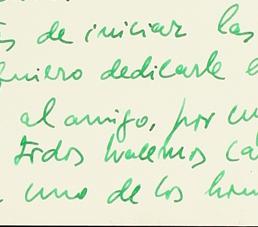 s de iniciar las
quiero dedicarle
al amigo, por
todos hacemos
uno de los hom